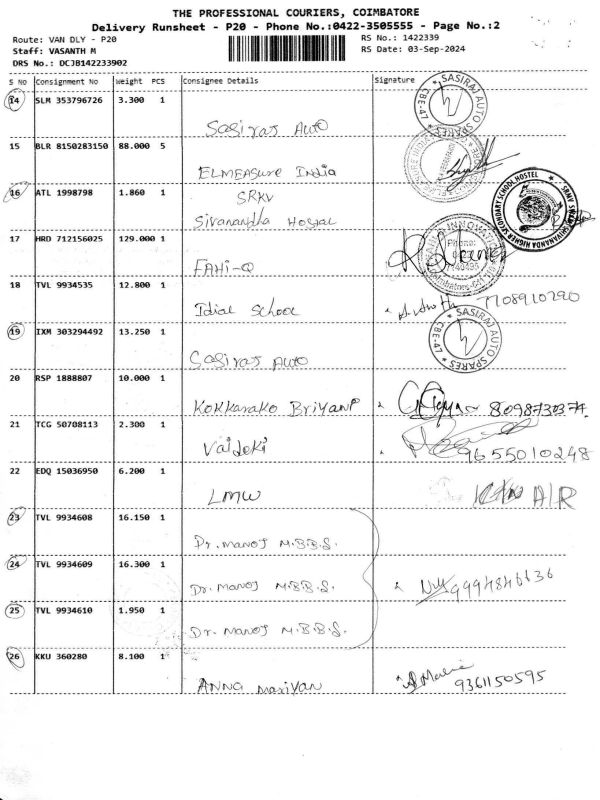 THE PROFESSIONAL COURIERS, COIMBATORE
Delivery Runsheet - P20 - Phone No.:0422-3505555 - Page No.:2
Route: VAN DLY - P20
RS No.: 1422339
Staff: VASANTH M
RS Date: 03-Sep-2024
DRS No.: DCJB142233902
S No Consignment No Weight PCS Consignee Details Signature
14 SLM 353796726 3.300 1
Sasiraj Auto
* SASIRAJ AUTO SPARES * CBE-47
15 BLR 8150283150 88.000 5
ELMEASURE India
16 ATL 1998798 1.860 1
SRKV
Sivanandha Hostal
17 HRD 712156025 129.000 1
FAHI-Q
18 TVL 9934535 12.800 1
Idial School
7708910290
19 IXM 303294492 13.250 1
Sasiraj Auto
* SASIRAJ AUTO SPARES * CBE-47
20 RSP 1888807 10.000 1
Kokkarako Briyani
8098730377.
21 TCG 50708113 2.300 1
Vaideki
9655010248
22 EDQ 15036950 6.200 1
LMW
23 TVL 9934608 16.150 1
Dr. Manoj M.B.B.S.
24 TVL 9934609 16.300 1
Dr. Manoj M.B.B.S.
9994846636
25 TVL 9934610 1.950 1
Dr. Manoj M.B.B.S.
26 KKU 360280 8.100 1
Anna Mariyan
9361150595